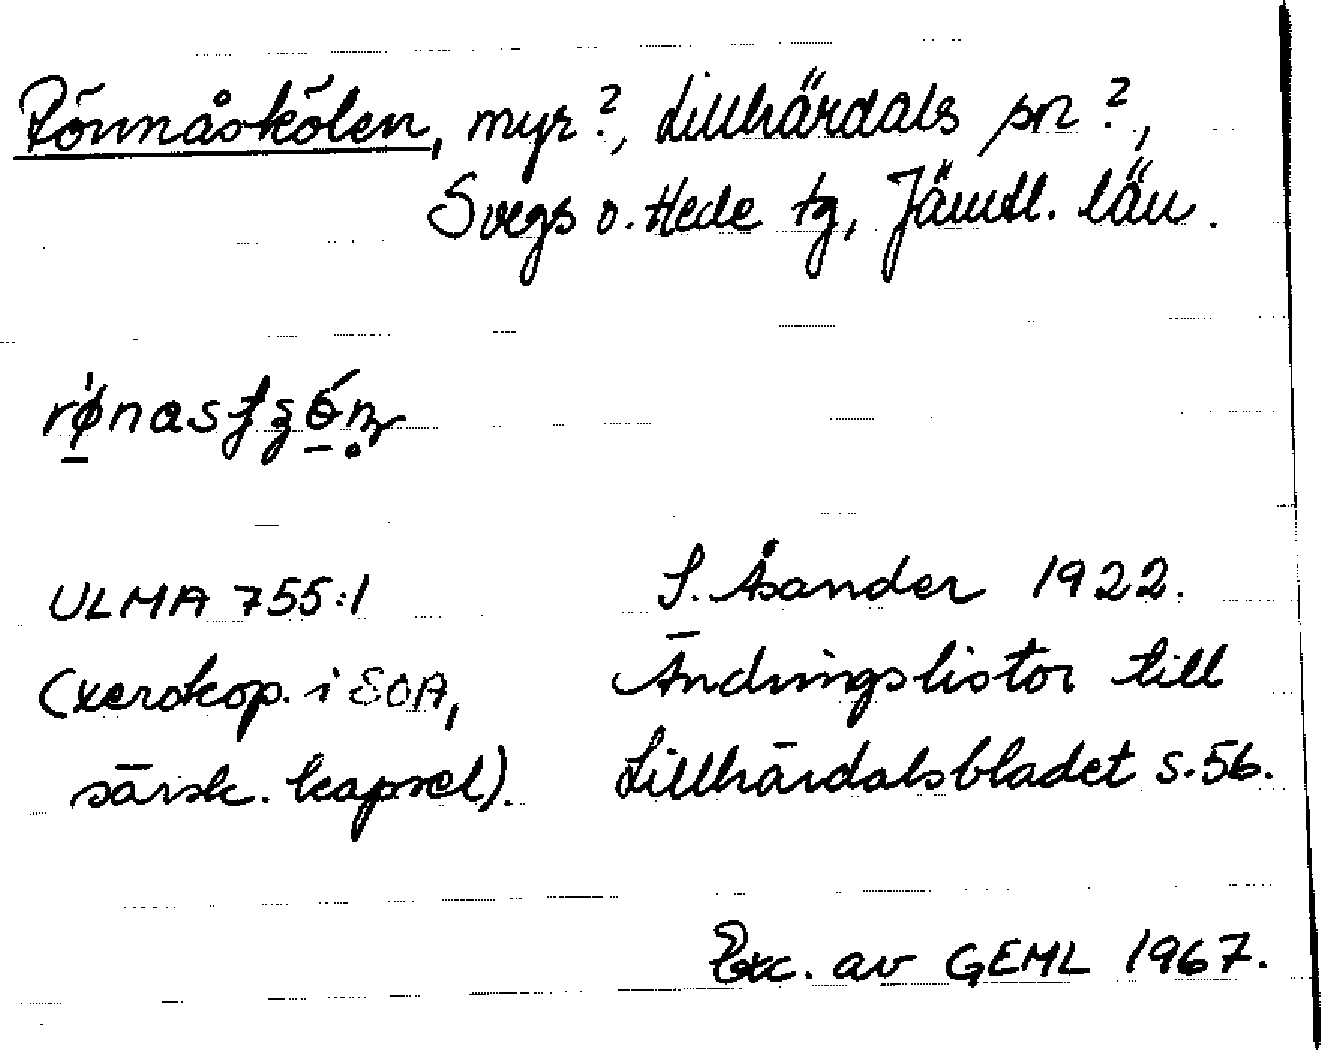 Rönnåskölen, myr?, Lillhärdals sn?,
Svegs o. Hede tg, Jämtl. län.
ULMA 755:1
S. Åsander 1922.
(xerokop. i SOA,
Ändringslistor till
särsk. kapsel).
Lillhärdalsbladet s. 56.
Exc. av GEML 1967.